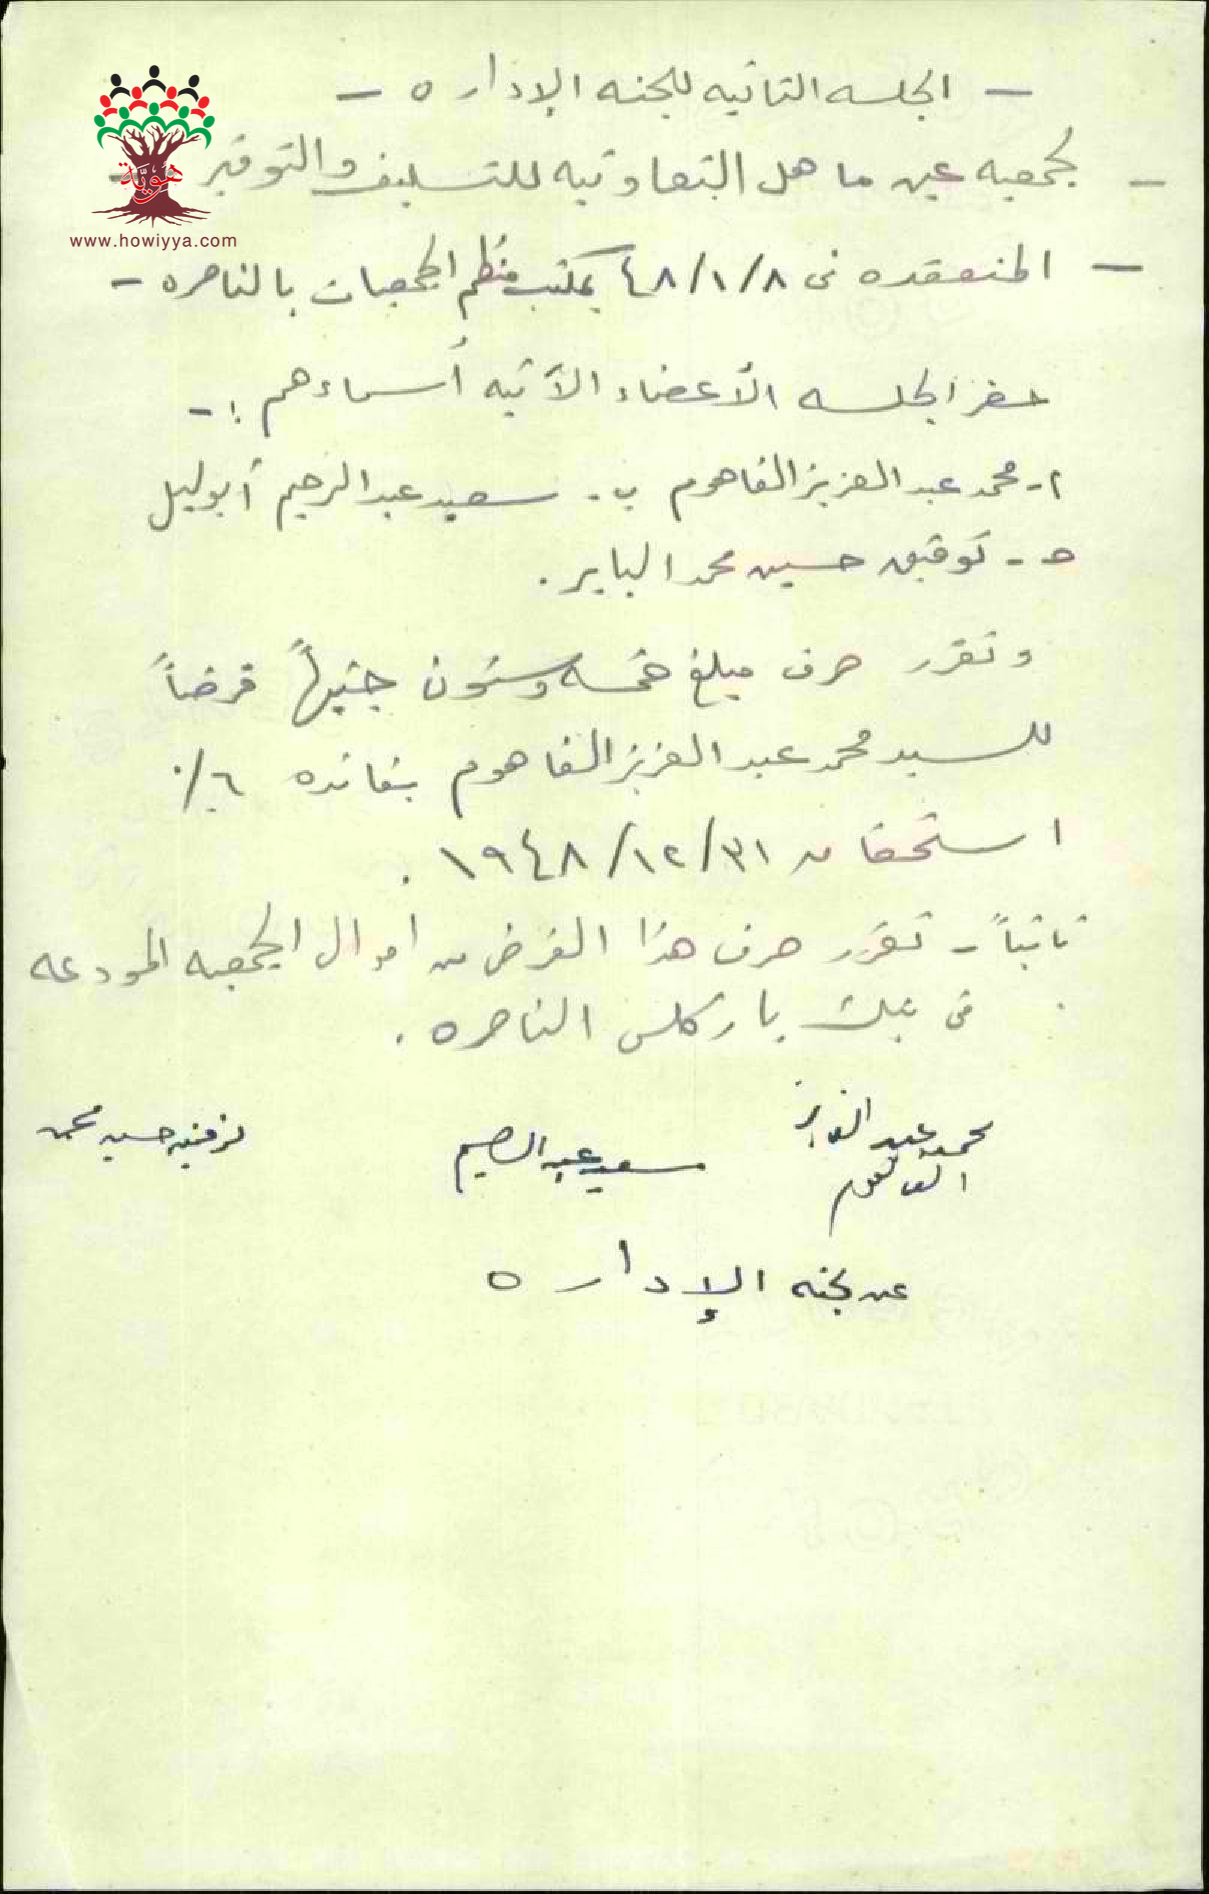 — الجلسه الثانيه للجنه الإداره —
— لجمعيه عين ماهل التعاونيه للتسليف والتوفير —
هوية
www.howiyya.com
— المنعقده في ٤٨/١/٨ بمكتب منظم الجمعيات بالناصره —
حضر الجلسه الأعضاء الآتيه أسماءهم :-
أ - محمد عبد العزيز الفاهوم ب - سعيد عبد الرحيم أبو ليل
حـ - توفيق حسين محمد الباير .
وتقرر صرف مبلغ خمسه وستون جنيهاً قرضاً
للسيد محمد عبد العزيز الفاهوم بفائده ٦٪
استحقاق ١٩٤٨/١٢/٣١ .
ثانياً - تقرر صرف هذا القرض من اموال الجمعيه المودعه
في بنك باركلس الناصره .
محمد عبد العزيز الفاهوم
سعيد عبد الرحيم
توفيق حسين محمد
عن لجنه الإداره